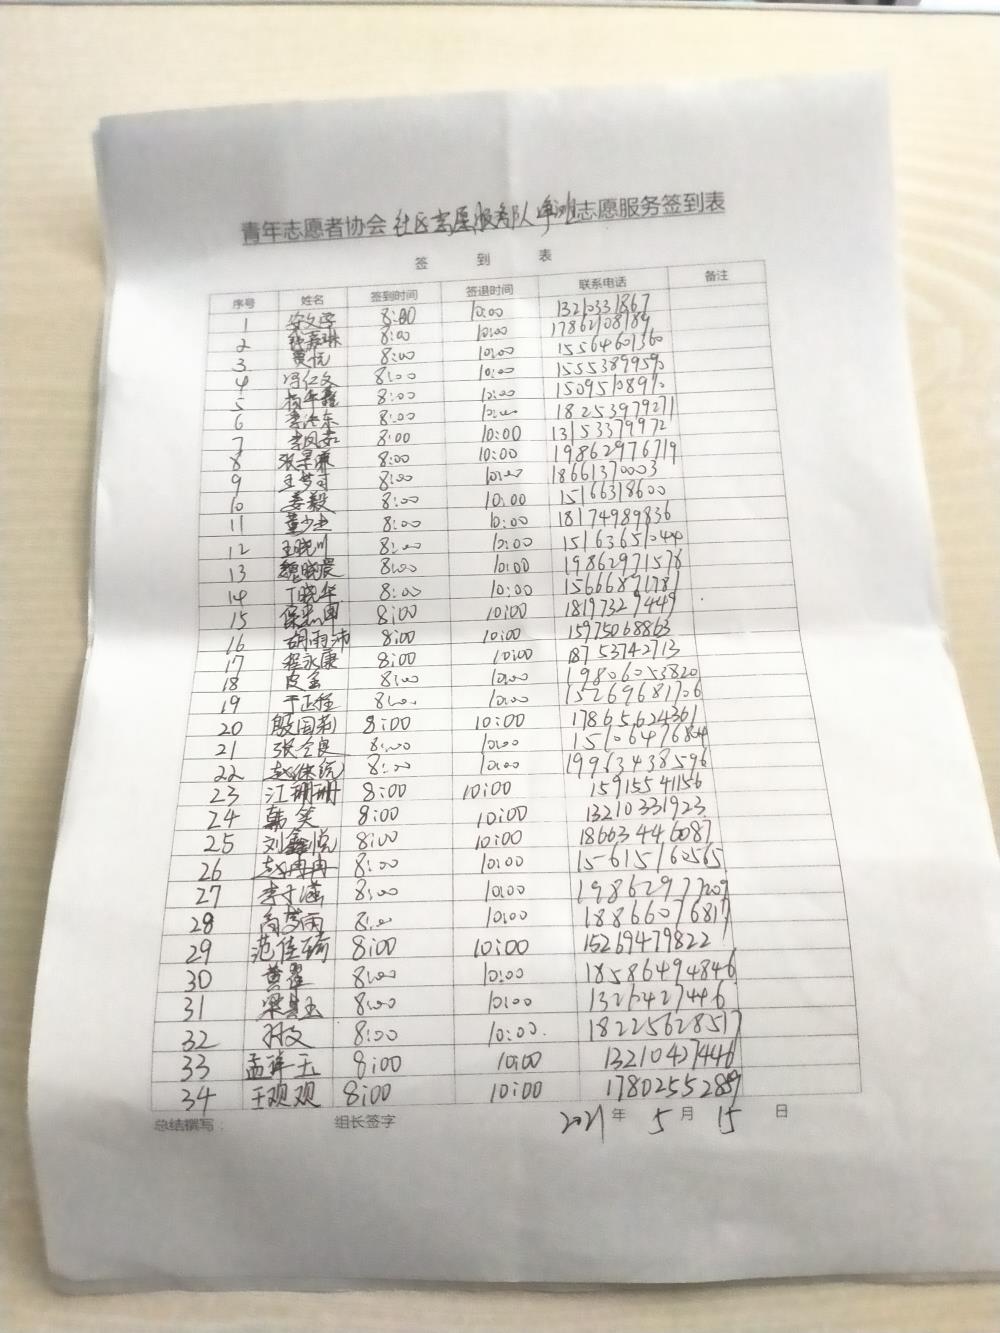 青年志愿者协会社区志愿服务队培训志愿服务签到表
签 到 表
序号 姓名 签到时间 签退时间 联系电话 备注
1 8:00 10:00 13210331867
2 8:00 10:00 17862108189
3 贾悦 8:00 10:00 15564601360
4 冯仁文 8:00 10:00 15553899590
5 8:00 10:00
6 李沭东 8:00 10:00 18253979271
7 李凤茹 8:00 10:00 13153379972
8 张景康 8:00 10:00 19862976719
9 王梦可 8:00 10:00 18661370003
10 姜毅 8:00 10:00 15166318600
11 董少杰 8:00 10:00 18174989836
12 王晓川 8:00 10:00 15163651044
13 魏晓晨 8:00 10:00 19862971578
14 丁晓华 8:00 10:00 15666871781
15 8:00 10:00 18197329449
16 胡雨沛 8:00 10:00 15975068863
17 程永康 8:00 10:00 18753742713
18 皮奎 8:00 10:00 19806053820
19 于正程 8:00 10:00 15269681706
20 殷国莉 8:00 10:00 17865624361
21 张全良 8:00 10:00 15106476804
22 赵继统 8:00 10:00 19963438596
23 江珊珊 8:00 10:00 15915541156
24 韩笑 8:00 10:00 13210331923
25 刘鑫悦 8:00 10:00 18663446087
26 赵冉冉 8:00 10:00 15615160565
27 李子涵 8:00 10:00 19862977209
28 尚梦雨 8:00 10:00 18866076817
29 范佳瑜 8:00 10:00 15269479822
30 黄翟 8:00 10:00 18586494846
31 梁真玉 8:00 10:00
32 孙文 8:00 10:00 18225628517
33 孟祥玉 8:00 10:00 13210427446
34 王观观 8:00 10:00 17802552889
总结撰写： 组长签字 2021 年 5 月 15 日